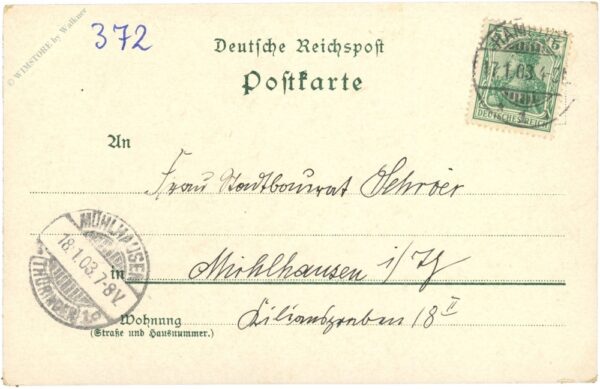 © WIMSTORE by Walkner
372
Deutsche Reichspost
Postkarte
HAMBURG
1.03.
5
DEUTSCHES REICH
An
Frau Stadtbaurat Schröer
MÜHLHAUSEN
18.1.03.7-8V.
(THÜRINGEN) 1.c
in Mühlhausen i/Th
Wohnung Kiliansgraben 18 II
(Straße und Hausnummer.)